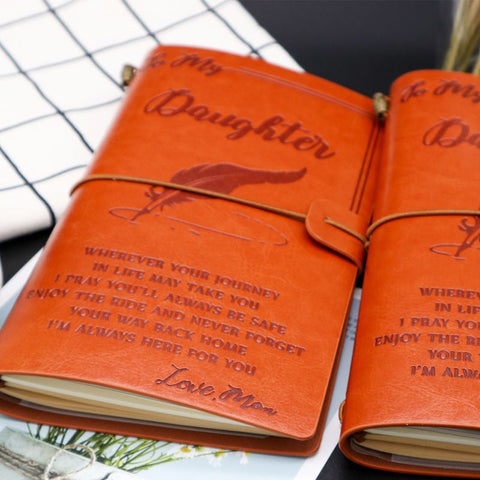 To My
Daughter
WHEREVER YOUR JOURNEY
IN LIFE MAY TAKE YOU
I PRAY YOU'LL ALWAYS BE SAFE
ENJOY THE RIDE AND NEVER FORGET
YOUR WAY BACK HOME
I'M ALWAYS HERE FOR YOU
Love, Mom
To My
Da
WHEREV
IN LIF
I PRAY YO
ENJOY THE RI
YOUR
I'M ALWA